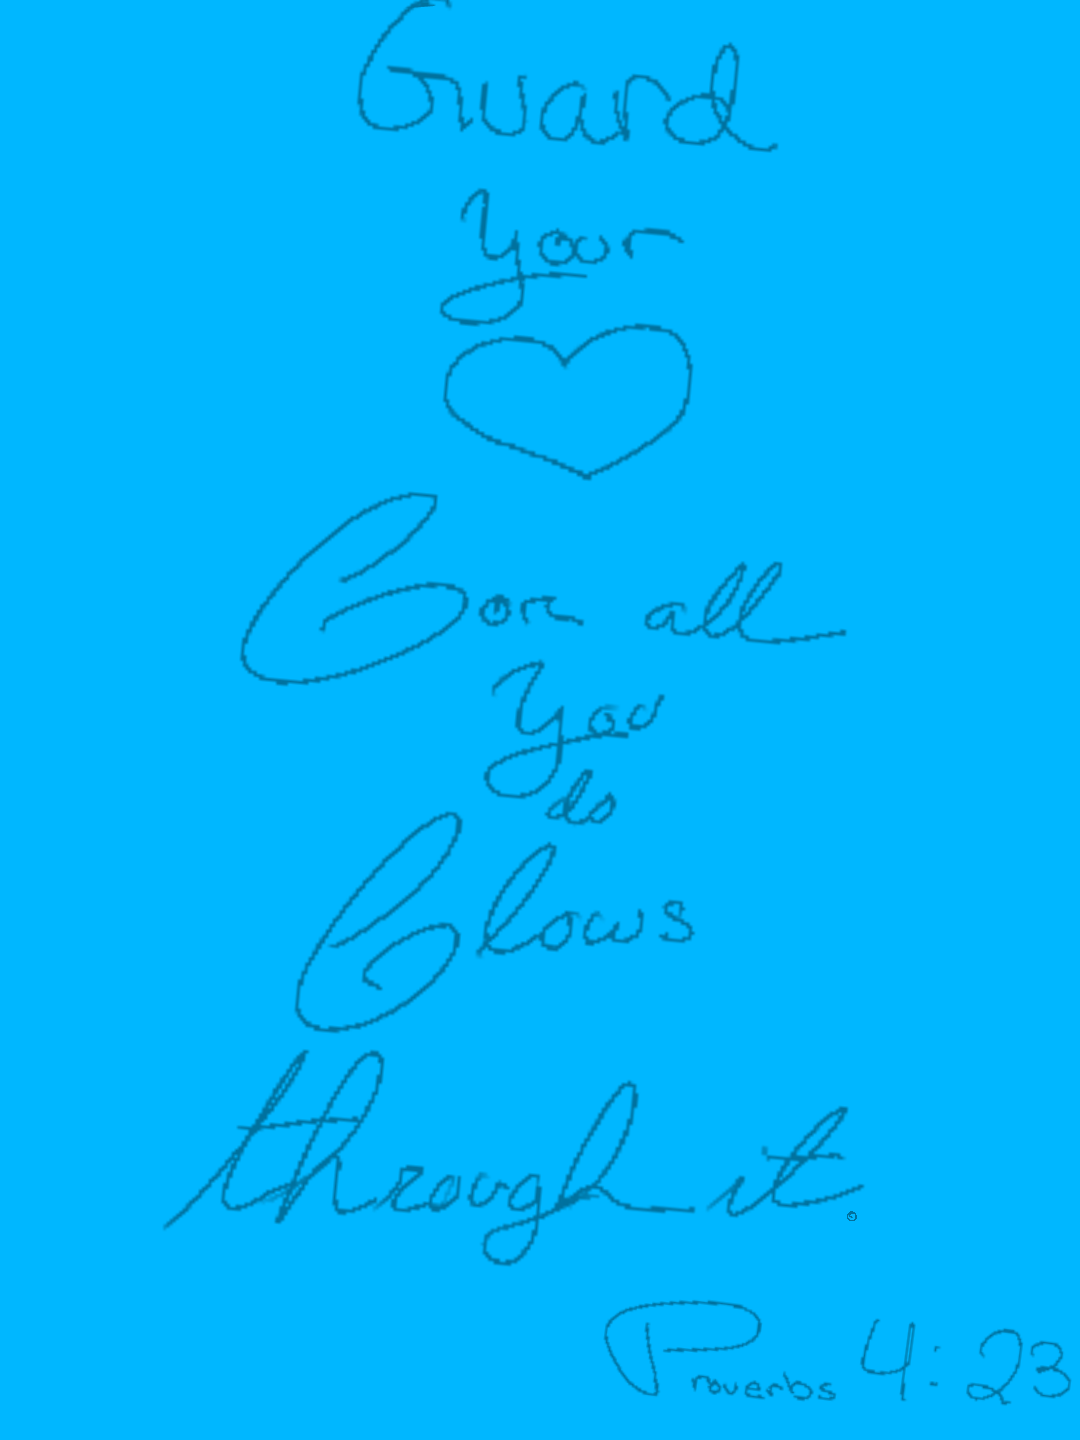 Guard
Your
For all
You
do
Flows
through it.
Proverbs 4:23